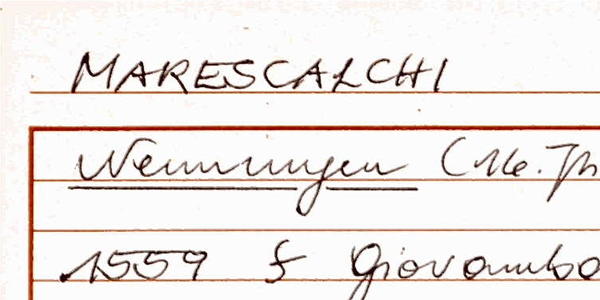 MARESCALCHI
Nennungen (16. Jh
1559 f Giovamba